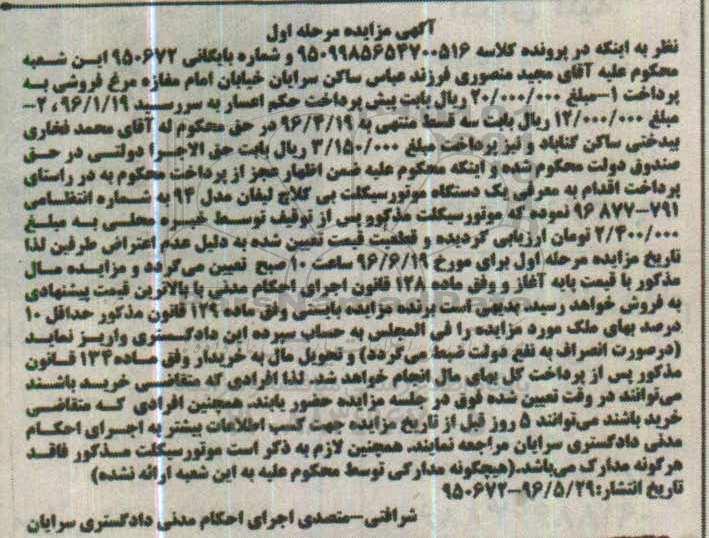 آگهی مزایده مرحله اول
نظر به اینکه در پرونده کلاسه ۹۵۰۹۹۸۵۶۵۴۷۰۰۵۱۶ و شماره بایگانی ۹۵۰۶۷۲ این شعبه
محکوم علیه آقای مجید منصوری فرزند عباس ساکن سرایان خیابان امام مغازه مرغ فروشی به
پرداخت ۱-مبلغ ۲۰/۰۰۰/۰۰۰ ریال بابت پیش پرداخت حکم اعسار به سررسید ۹۶/۱/۱۹ ، ۲-
مبلغ ۱۲/۰۰۰/۰۰۰ ریال بابت سه قسط منتهی به ۹۶/۴/۱۹ در حق محکوم له آقای محمد فخاری
بیدختی ساکن گناباد و نیز پرداخت مبلغ ۳/۱۵۰/۰۰۰ ریال بابت حق الاجرا دولتی در حق
صندوق دولت محکوم شده و اینکه محکوم علیه ضمن اظهار عجز از پرداخت محکوم به در راستای
پرداخت اقدام به معرفی یک دستگاه موتورسیکلت بی کلاچ لیفان مدل ۹۴ به شماره انتظامی
۷۹۱-۸۷۷ ۹۶ نموده که موتورسیکلت مذکور پس از توقیف توسط خبره محلی به مبلغ
۲/۴۰۰/۰۰۰ تومان ارزیابی گردیده و قطعیت قیمت تعیین شده به دلیل عدم اعتراض طرفین لذا
تاریخ مزایده مرحله اول برای مورخ ۹۶/۶/۱۹ ساعت ۱۰ صبح تعیین می‌گردد و مزایده مال
مذکور با قیمت پایه آغاز و وفق ماده ۱۲۸ قانون اجرای احکام مدنی با بالاترین قیمت پیشنهادی
به فروش خواهد رسید. بدیهی است برنده مزایده بایستی وفق ماده ۱۲۹ قانون مذکور حداقل ۱۰
درصد بهای ملک مورد مزایده را فی المجلس به حساب سپرده این دادگستری واریز نماید
(درصورت انصراف به نفع دولت ضبط می‌گردد) و تحویل مال به خریدار وفق ماده۱۳۴ قانون
مذکور پس از پرداخت کل بهای مال انجام خواهد شد. لذا افرادی که متقاضی خرید باشند
می‌توانند در وقت تعیین شده فوق در جلسه مزایده حضور یابند. همچنین افرادی که متقاضی
خرید باشند می‌توانند ۵ روز قبل از تاریخ مزایده جهت کسب اطلاعات بیشتر به اجرای احکام
مدنی دادگستری سرایان مراجعه نمایند. همچنین لازم به ذکر است موتورسیکلت مذکور فاقد
هرگونه مدارک می‌باشد.(هیچگونه مدارکی توسط محکوم علیه به این شعبه ارائه نشده)
تاریخ انتشار:۹۶/۵/۲۹-۹۵۰۶۷۲
شرافتی-متصدی اجرای احکام مدنی دادگستری سرایان